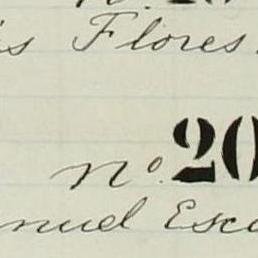 is Flores
no. 20
nuel Esc